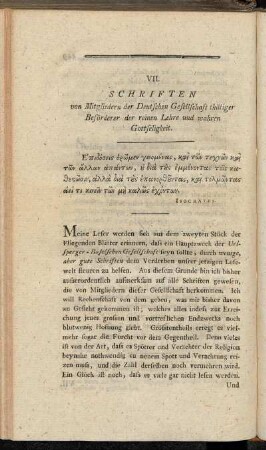 VII.
SCHRIFTEN
von Mitgliedern der Deutschen Gesellschaft thätiger
Beförderer der reinen Lehre und wahren
Gottseligkeit.
Επιδόσεις ὁρῶμεν γιγνομένας, καὶ τῶν τεχνῶν καὶ
τῶν ἄλλων ἁπάντων, οὐ διὰ τοὺς ἐμμένοντας τοῖς κα-
θεστῶσιν, ἀλλὰ διὰ τοὺς ἐπανορθοῦντας, καὶ τολμῶντας
ἀεί τι κινεῖν τῶν μὴ καλῶς ἐχόντων.
ISOCRATES.
Meine Leser werden sich aus dem zweyten Stück der
Fliegenden Blätter erinnern, dass ein Hauptzweck der Url-
sperger-Baselschen Gesellschaft seyn sollte, durch wenige,
aber gute Schriften dem Verderben unsrer jetzigen Lese-
welt steuren zu helfen. Aus diesem Grunde bin ich bisher
ausserordentlich aufmerksam auf alle Schriften gewesen,
die von Mitgliedern dieser Gesellschaft herkommen. Ich
will Rechenschaft von dem geben, was mir bisher davon
zu Gesicht gekommen ist; wiewohl alles nicht zur Errei-
chung jenes grossen und vortreflichen Endzwecks noch
blutwenig Hofnung giebt. Grösstentheils erregt es viel-
mehr sogar die Furcht vor dem Gegentheil. Denn vieles
ist von der Art, dass es Spötter und Verächter der Religion
beynahe nothwendig zu neuem Spott und Verachtung rei-
zen muss, und die Zahl derselben noch vermehren wird.
Ein Glück ist auch, dass es viele gar nicht lesen werden.
Und